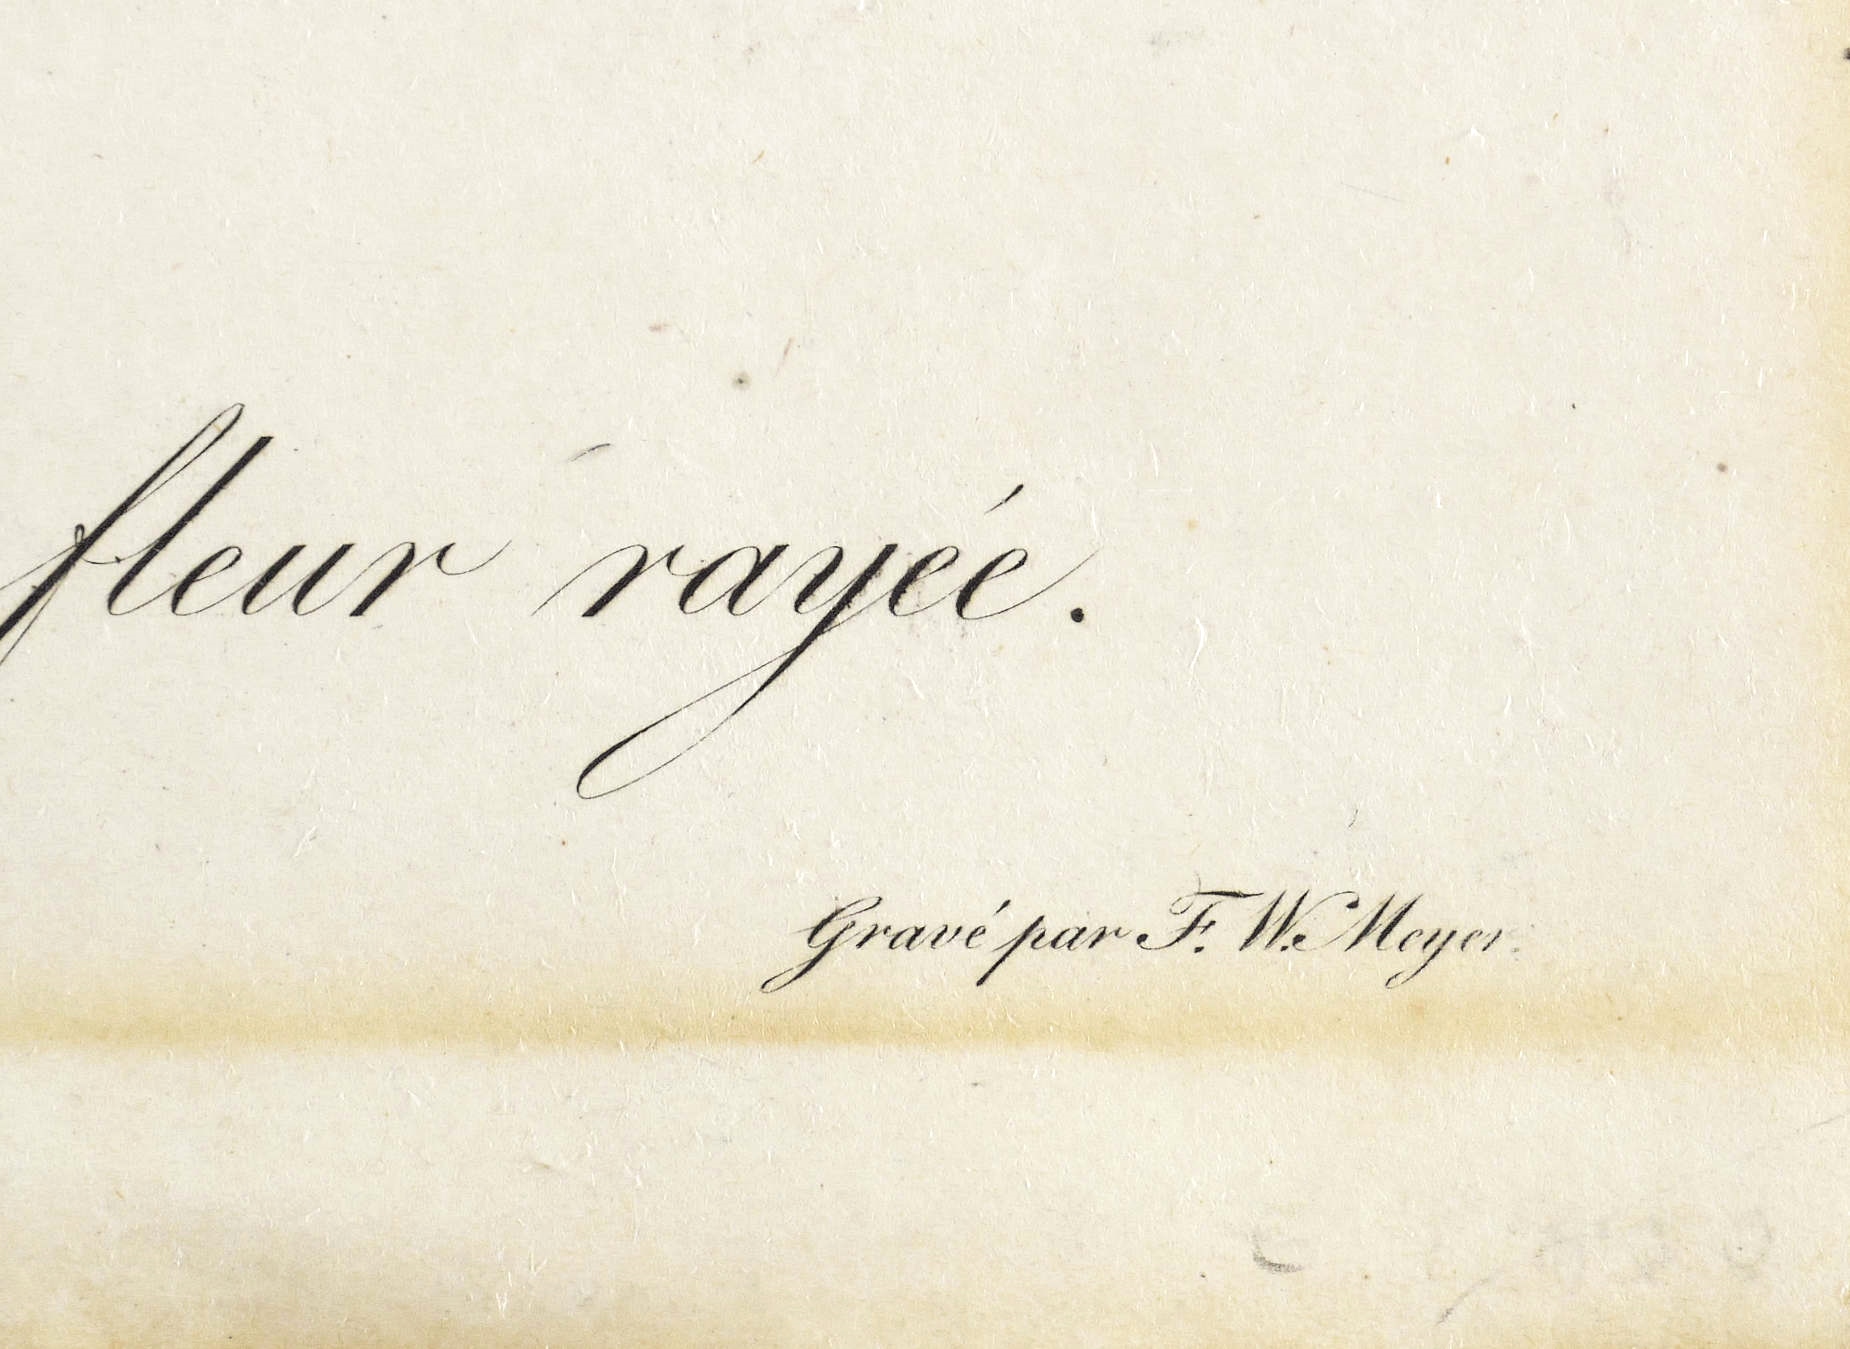 fleur rayée.
Gravé par F. W. Meyer.